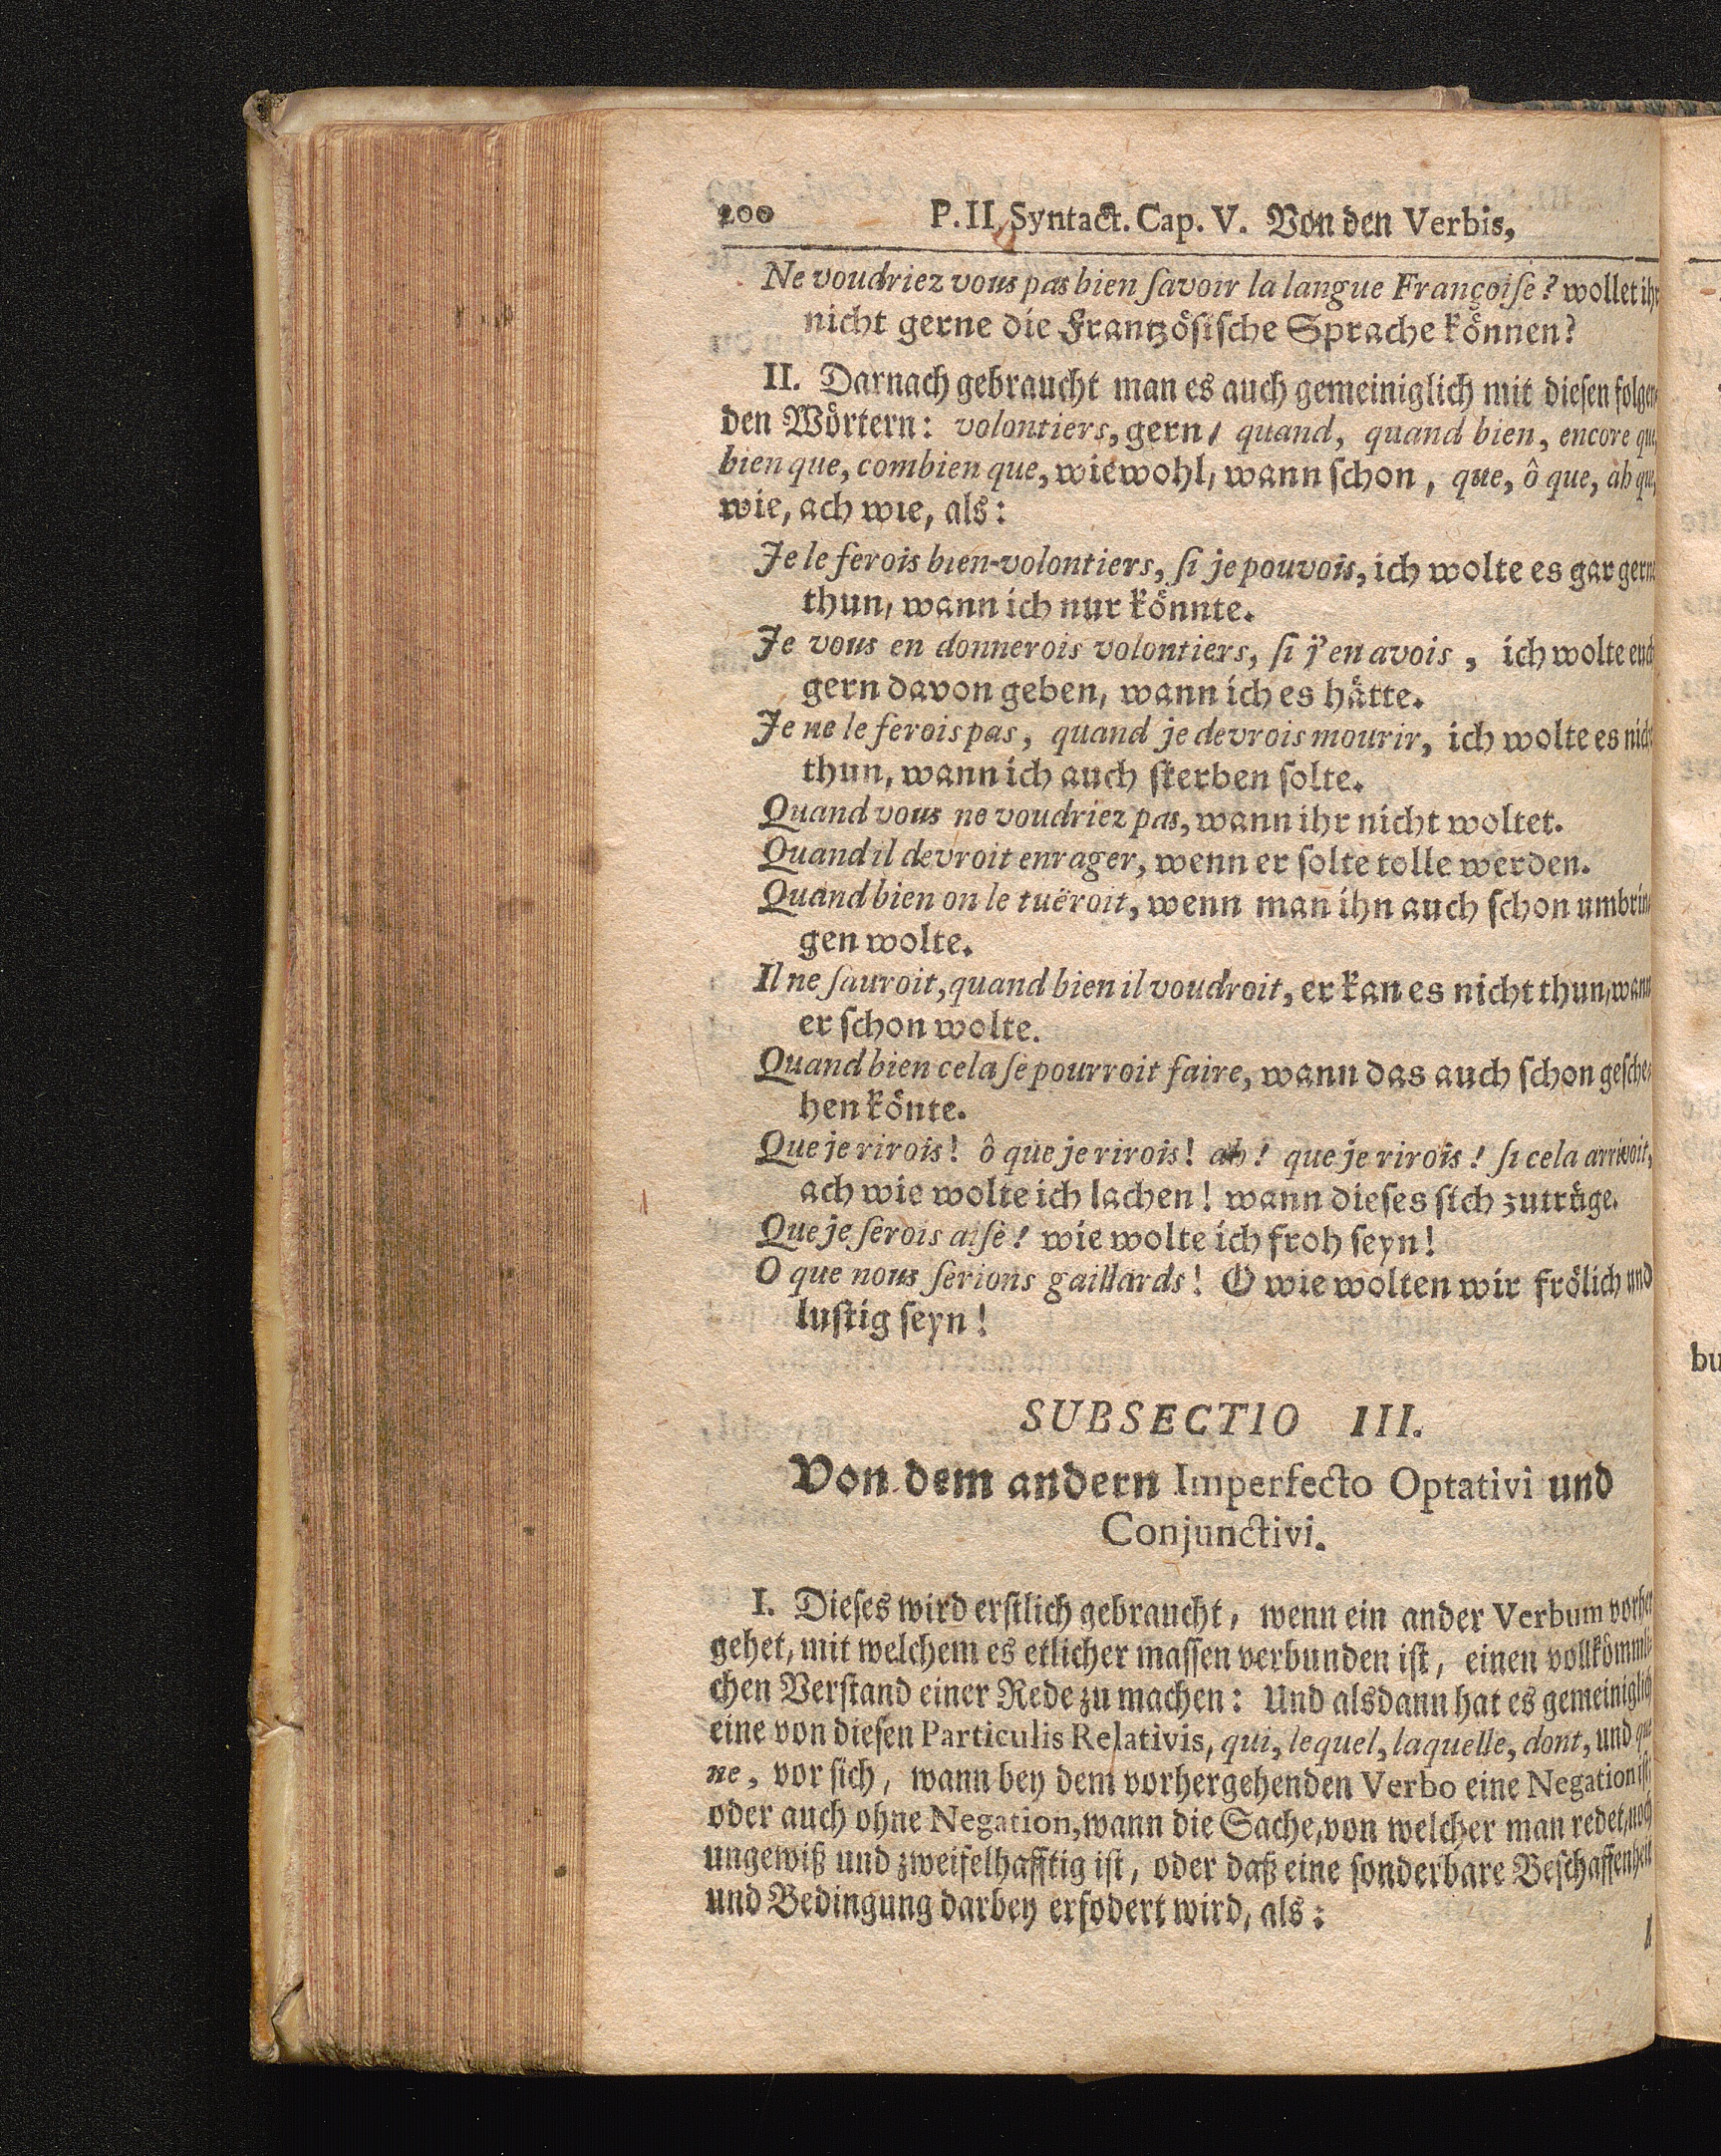 200 P. II. Syntact. Cap. V. Von den Verbis,
Ne voudriez vous pas bien ſavoir la langue Françoiſe? wollet ihr
nicht gerne die Frantzöſiſche Sprache können?
II. Darnach gebraucht man es auch gemeiniglich mit dieſen folgen-
den Wörtern: volontiers, gern/ quand, quand bien, encore que,
bien que, combien que, wiewohl, wann ſchon, que, ô que, ah que,
wie, ach wie, als:
Je le ferois bien-volontiers, ſi je pouvois, ich wolte es gar gerne
thun, wann ich nur könnte.
Je vous en donnerois volontiers, ſi j'en avois, ich wolte euch
gern davon geben, wann ich es hätte.
Je ne le ferois pas, quand je devrois mourir, ich wolte es nicht
thun, wann ich auch ſterben ſolte.
Quand vous ne voudriez pas, wann ihr nicht woltet.
Quand il devroit enrager, wenn er ſolte tolle werden.
Quand bien on le tuëroit, wenn man ihn auch ſchon umbrin-
gen wolte.
Il ne ſauroit, quand bien il voudroit, er kan es nicht thun, wann
er ſchon wolte.
Quand bien cela ſe pourroit faire, wann das auch ſchon geſche-
hen könte.
Que je rirois! ô que je rirois! ah! que je rirois! ſi cela arrivoit,
ach wie wolte ich lachen! wann dieſes ſich zutrüge.
Que je ſerois aiſe! wie wolte ich froh ſeyn!
O que nous ſerions gaillards! O wie wolten wir frölich und
luſtig ſeyn!
SUBSECTIO III.
Von dem andern Imperfecto Optativi und
Conjunctivi.
I. Dieſes wird erſtlich gebraucht, wenn ein ander Verbum vorher
gehet, mit welchem es etlicher maſſen verbunden iſt, einen vollkömmli-
chen Verſtand einer Rede zu machen: Und alsdann hat es gemeiniglich
eine von dieſen Particulis Relativis, qui, lequel, laquelle, dont, und que
ne, vor ſich, wann bey dem vorhergehenden Verbo eine Negation iſt;
oder auch ohne Negation, wann die Sache, von welcher man redet, noch
ungewiß und zweifelhafftig iſt, oder daß eine ſonderbare Beſchaffenheit
und Bedingung darbey erfodert wird, als:
bu